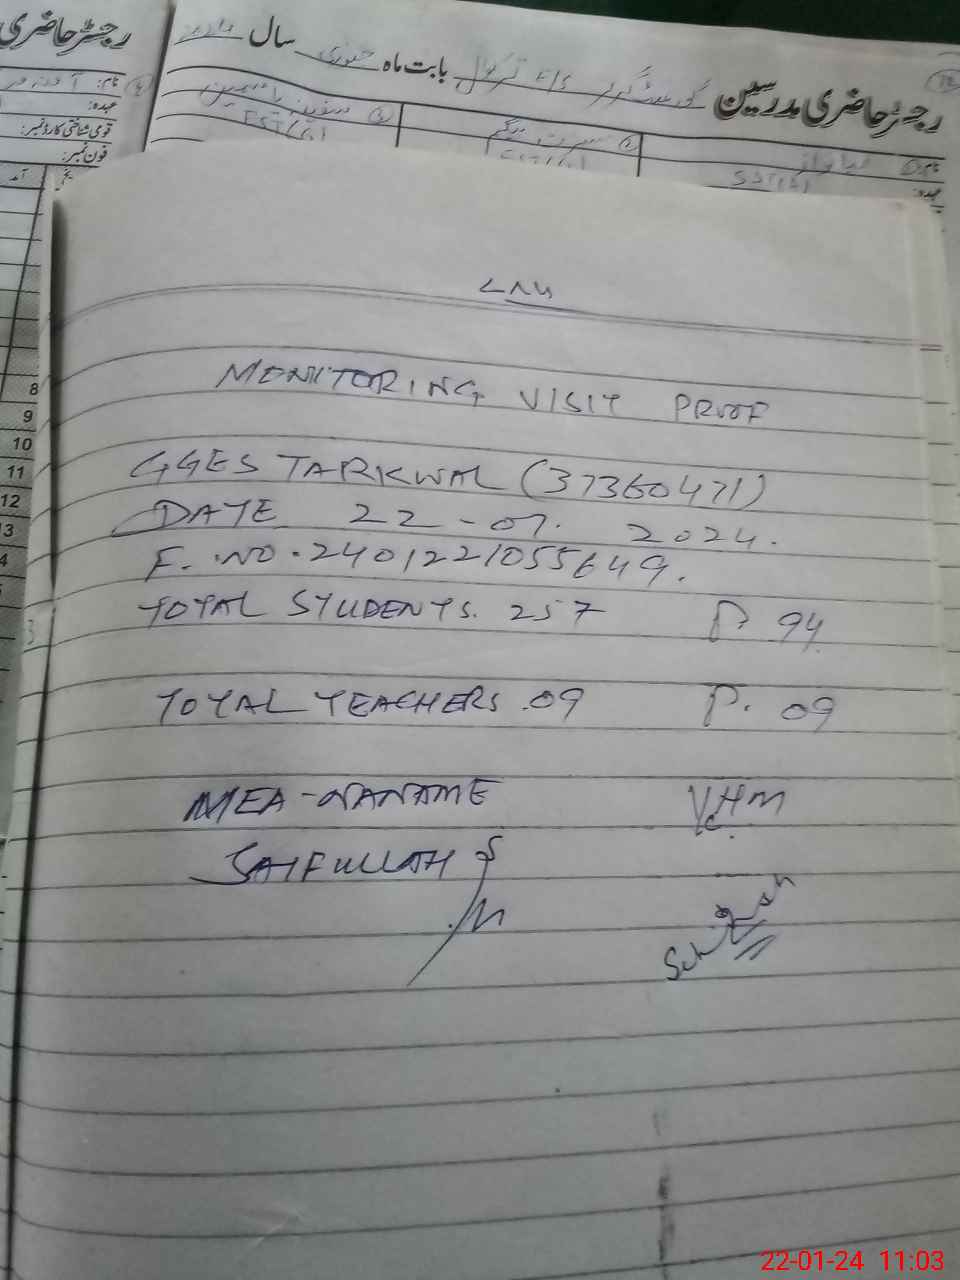 رجسٹر حاضری
رجسٹر حاضری مدرسین
بابت ماہ جنوری سال
نام:
عہدہ:
قومی شناختی کارڈ نمبر:
فون نمبر:
آمد
نام:
عہدہ:
EST(G)
SST(G)
۷۸۶
MONITORING VISIT PROOF
GGES TARKWAL (37360471)
DATE 22-01. 2024.
F. NO. 2401221055649.
TOTAL STUDENTS. 257 P. 94
TOTAL TEACHERS. 09 P. 09
MEA-NANAME VHM
SAIFULLAH
8
9
10
11
12
22-01-24 11:03